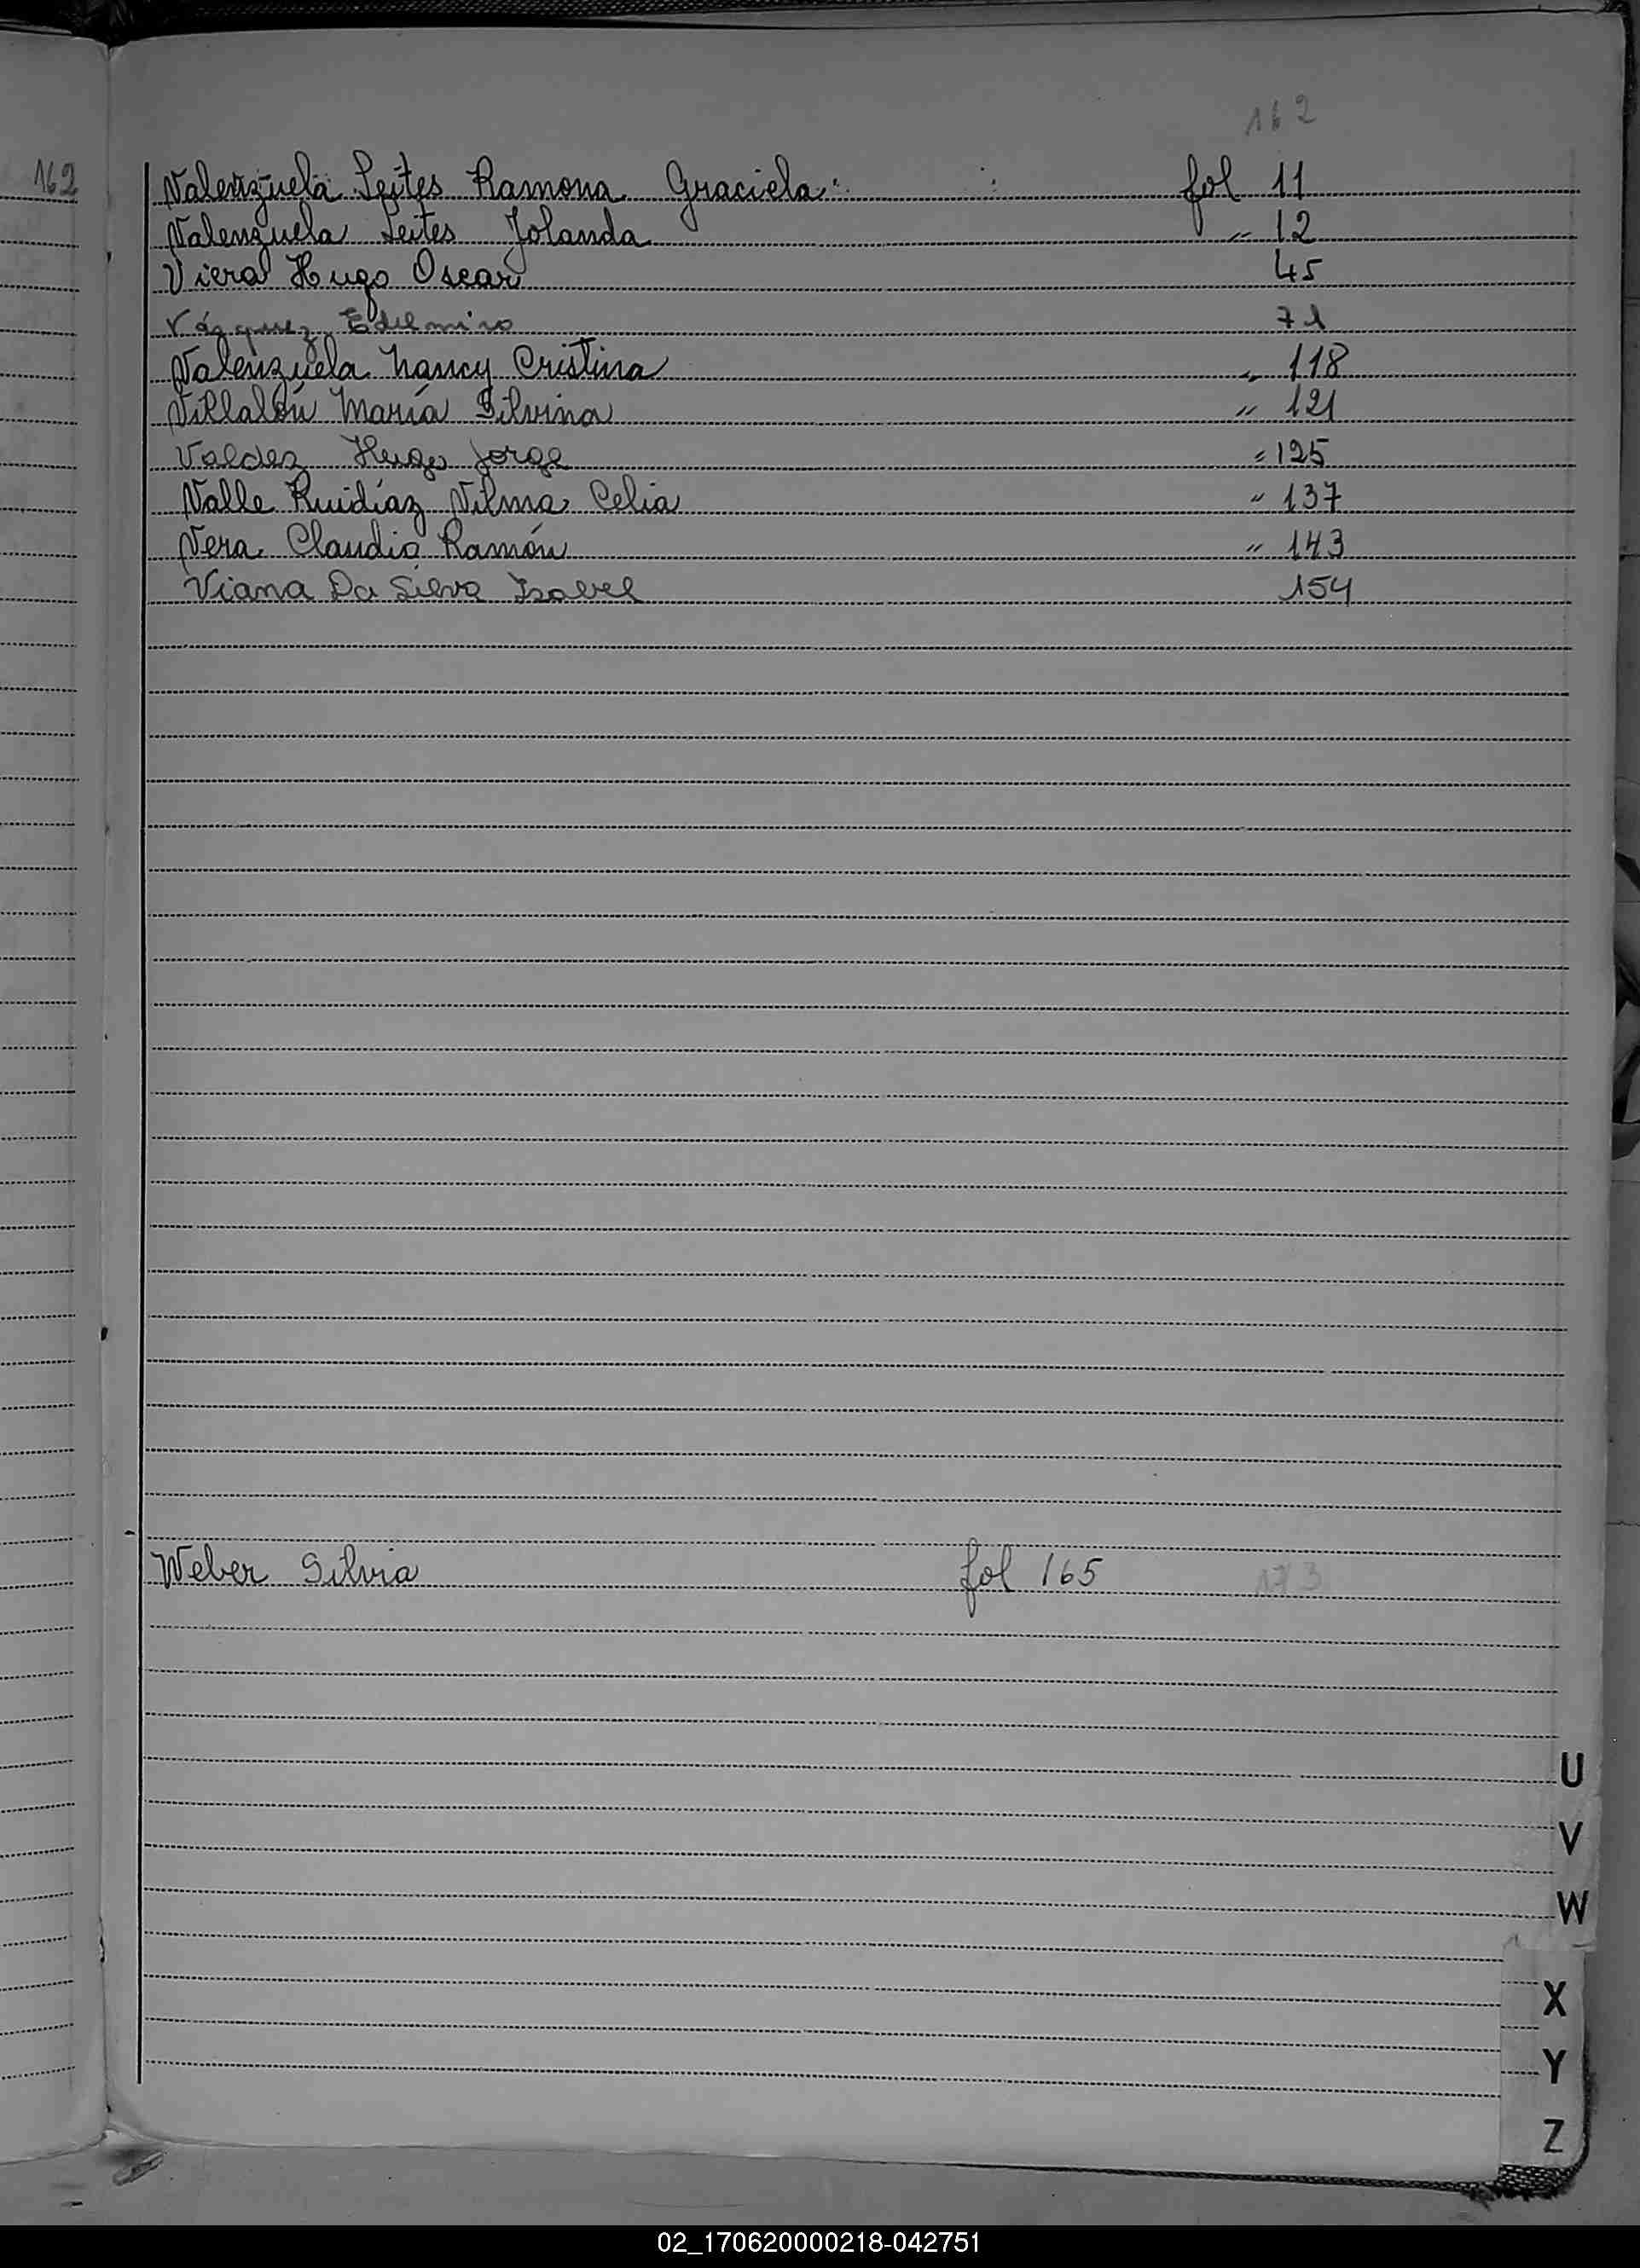 162
162
Valenzuela Leites Ramona Graciela fol 11
Valenzuela Leites Jolanda " 12
Viera Hugo Oscar 45
Vázquez Edelmiro 71
Valenzuela Nancy Cristina " 118
Villalón María Silvina " 121
Valdez Hugo Jorge " 125
Valle Ruidíaz Vilma Celia " 137
Vera Claudio Ramón " 143
Viana Da Silva Isabel 154
Weber Silvia fol 165 173
U
V
W
X
Y
Z
02_170620000218-042751